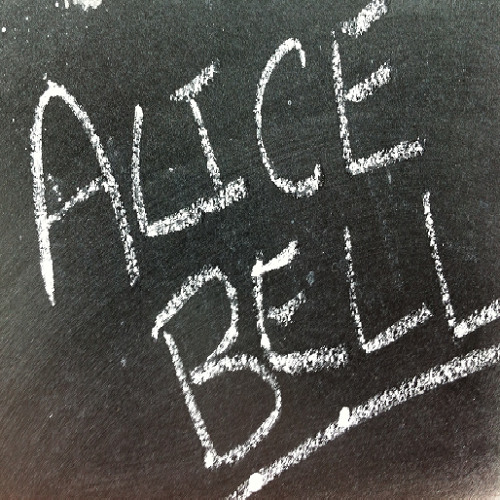 ALICE
BELL